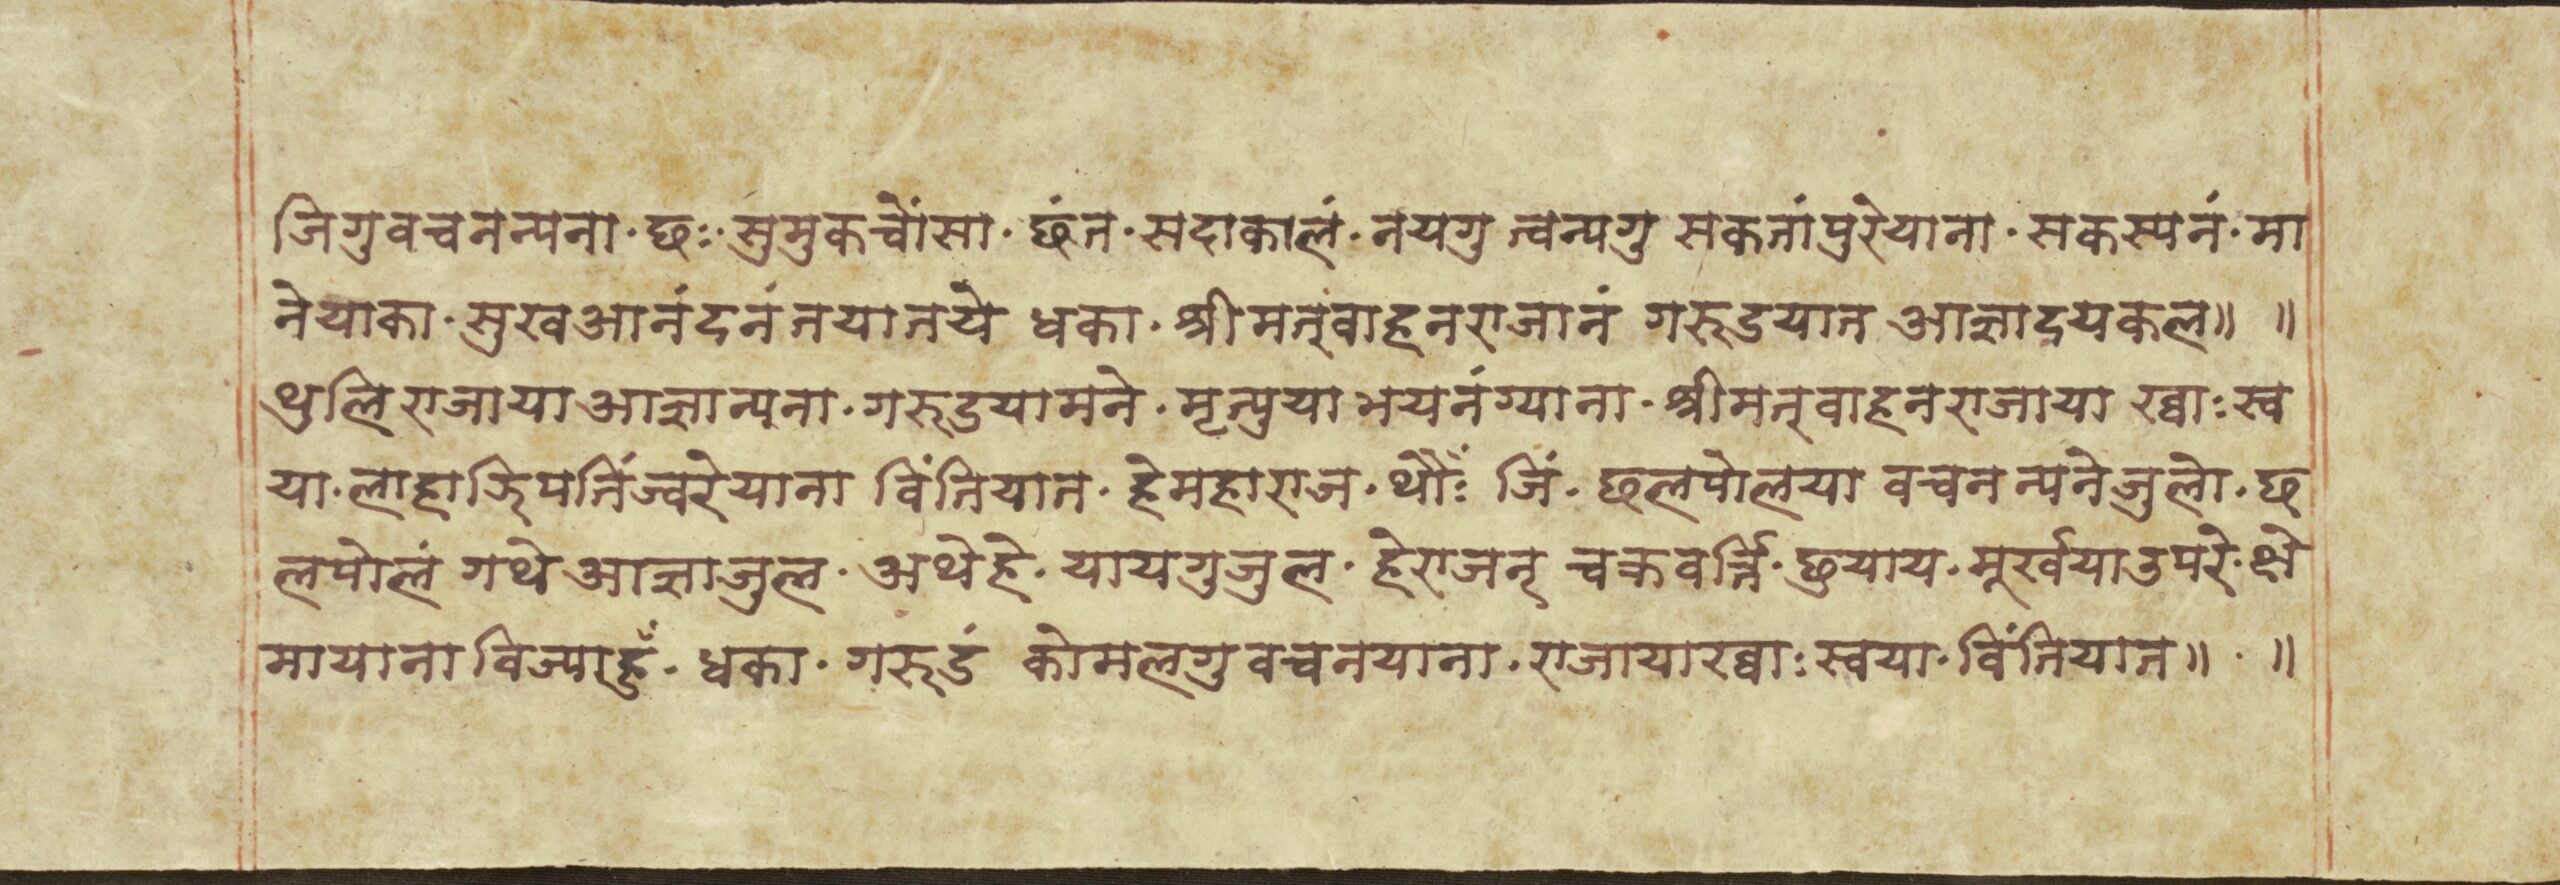 जिगुवचनन्यना · छः · सुमुकचोंसा · छंत · सदाकालं · नयगु त्वन्यगु सकतांपुरेयाना · सकस्यनं · मा
नेयाका · सुखआनंदनं तयातये धका · श्रीमत्वाहनराजानं गरूडयात आज्ञादयकल॥ ॥
थुलि राजाया आज्ञान्यना · गरूडयामने · मृत्युया भयनंग्याना · श्रीमत्वाहनराजाया ख्वाः स्व
या · लाहाञिपतिंज्वरेयाना विंतियात · हेमहाराज · थौंः जिं · छलपोलया वचन न्यनेजुलो · छ
लपोलं गथे आज्ञाजुल · अथेहे · यायगुजुल · हेराजन् चक्रवर्त्ति · छुयाय · मूर्खयाउपरे · क्षे
मायाना विज्याहुँ · धका · गरूडं कोमलगु वचनयाना · राजायाख्वाः स्वया · विंतियात॥ · ॥